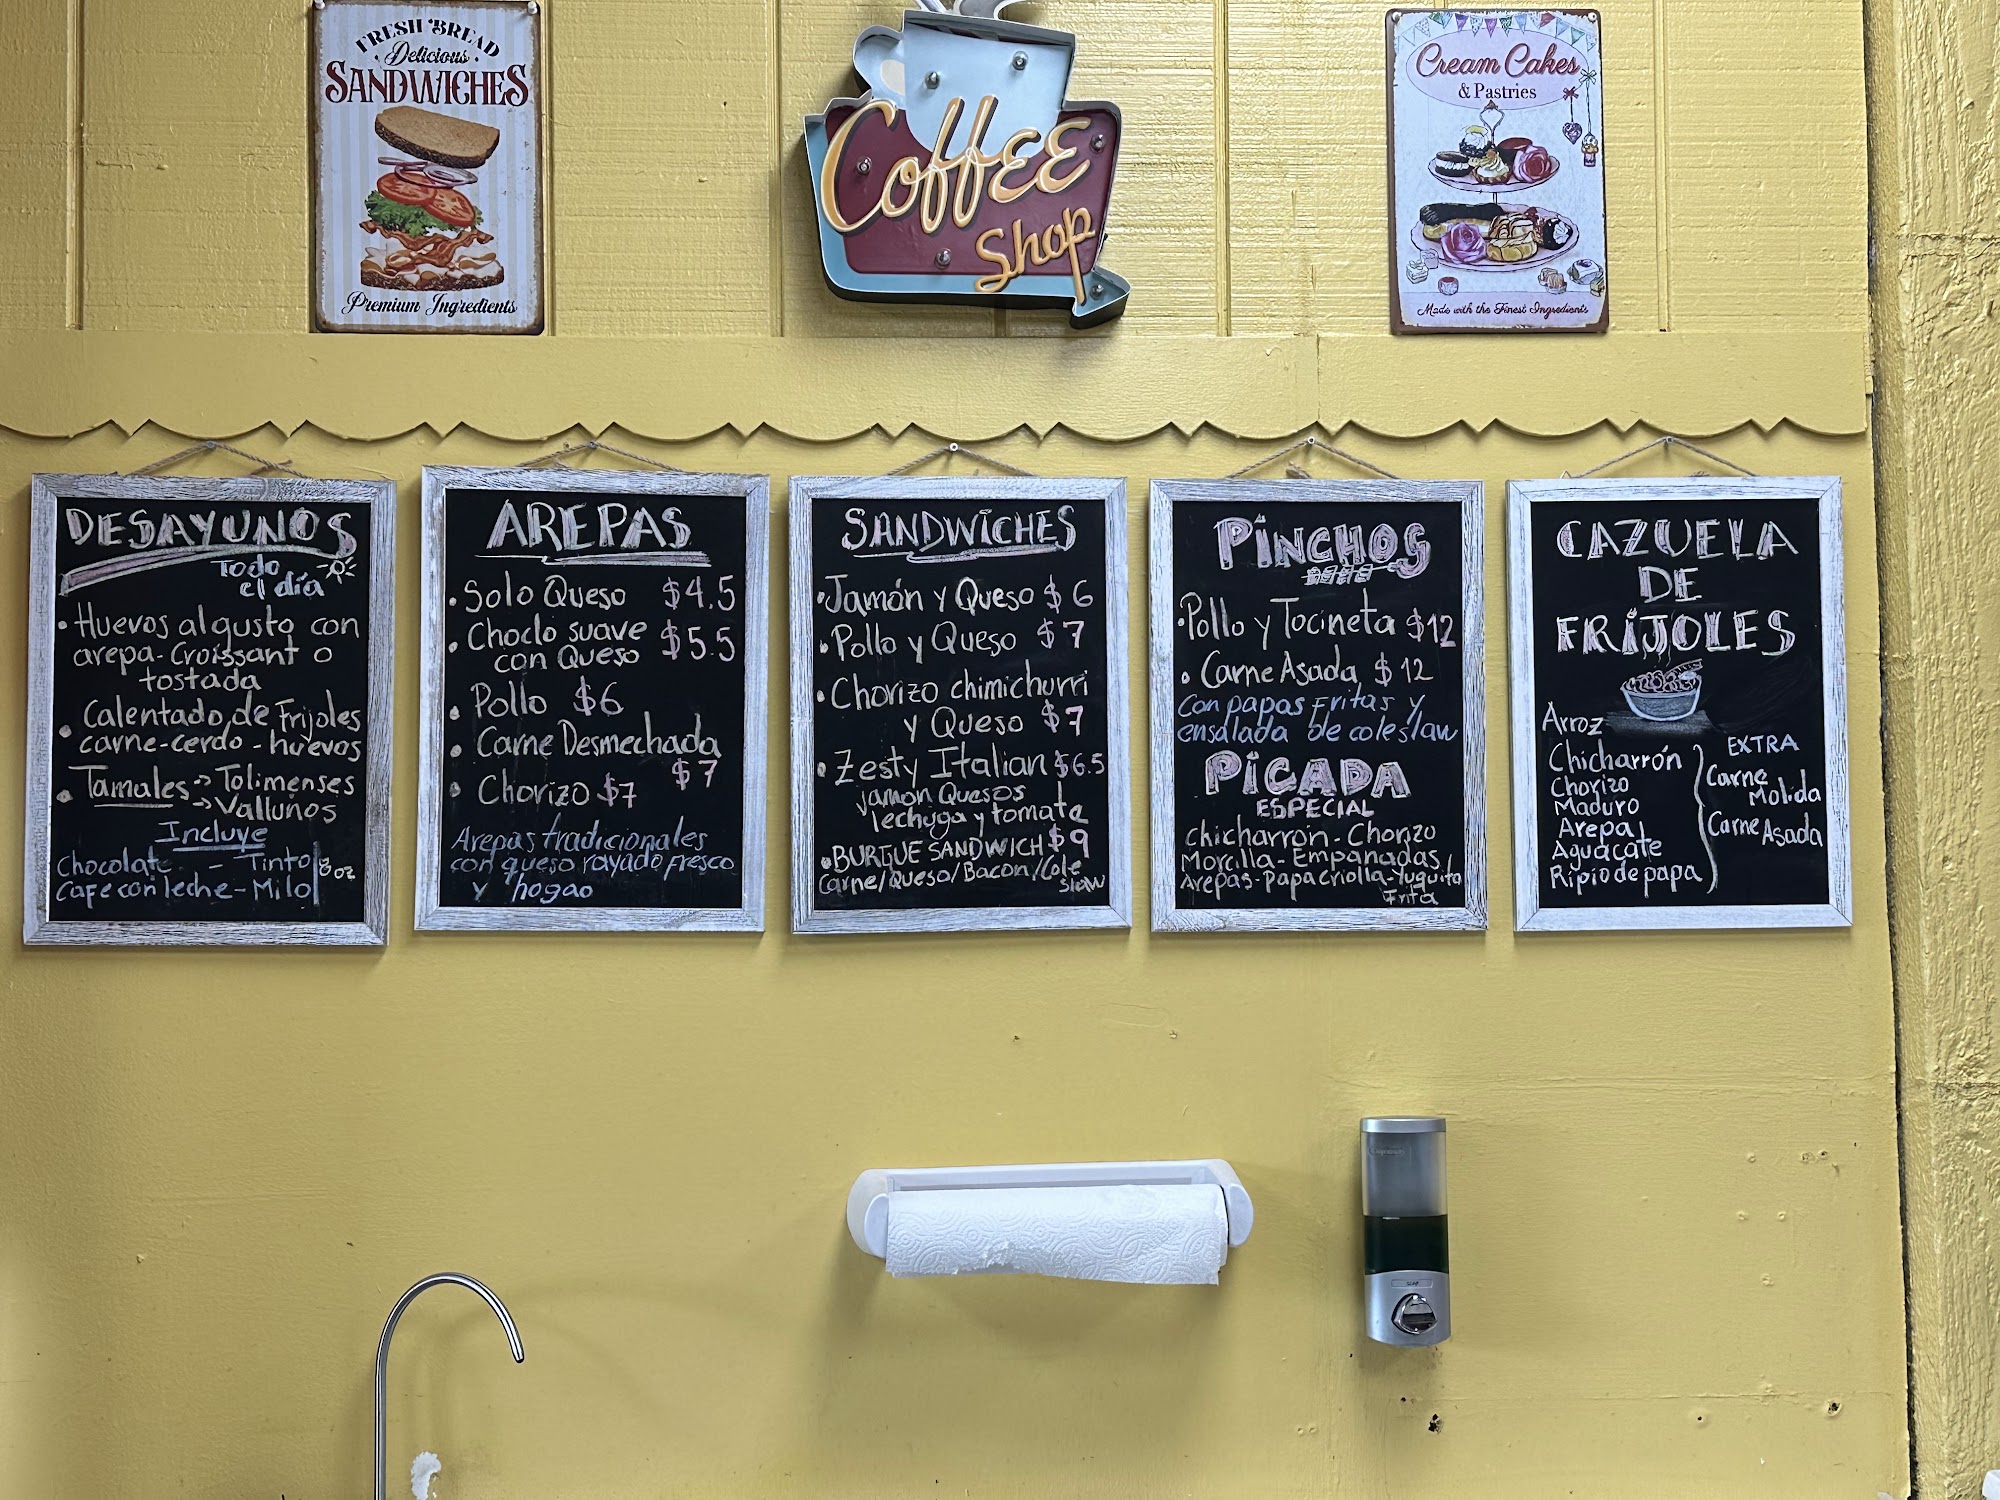 FRESH BREAD
Delicious
SANDWICHES
Premium Ingredients
Coffee
Shop
Cream Cakes
& Pastries
Made with the Finest Ingredients
DESAYUNOS
Todo
el día
• Huevos al gusto con
arepa - Croissant o
tostada
• Calentado de Frijoles
carne - cerdo - huevos
• Tamales → Tolimenses
→ Vallunos
Incluye
Chocolate - Tinto
Cafe con leche - Milo
8 oz
AREPAS
• Solo Queso $4.5
• Choclo suave $5.5
con Queso
• Pollo $6
• Carne Desmechada
$7
• Chorizo $7
Arepas tradicionales
con queso rayado fresco
y hogao
SANDWICHES
• Jamón y Queso $6
• Pollo y Queso $7
• Chorizo chimichurri
y Queso $7
• Zesty Italian $6.5
jamon Quesos
lechuga y tomate
• BURGUE SANDWICH $9
Carne/Queso/Bacon/Cole
slaw
PINCHOS
• Pollo y Tocineta $12
• Carne Asada $12
Con papas Fritas y
ensalada de coleslaw
PICADA
ESPECIAL
Chicharron - Chorizo
Morcilla - Empanadas
Arepas - Papa criolla - Yuquita
Frita
CAZUELA
DE
FRIJOLES
Arroz
Chicharrón
Chorizo
Maduro
Arepa
Aguacate
Ripio de papa
EXTRA
Carne
Molida
Carne Asada